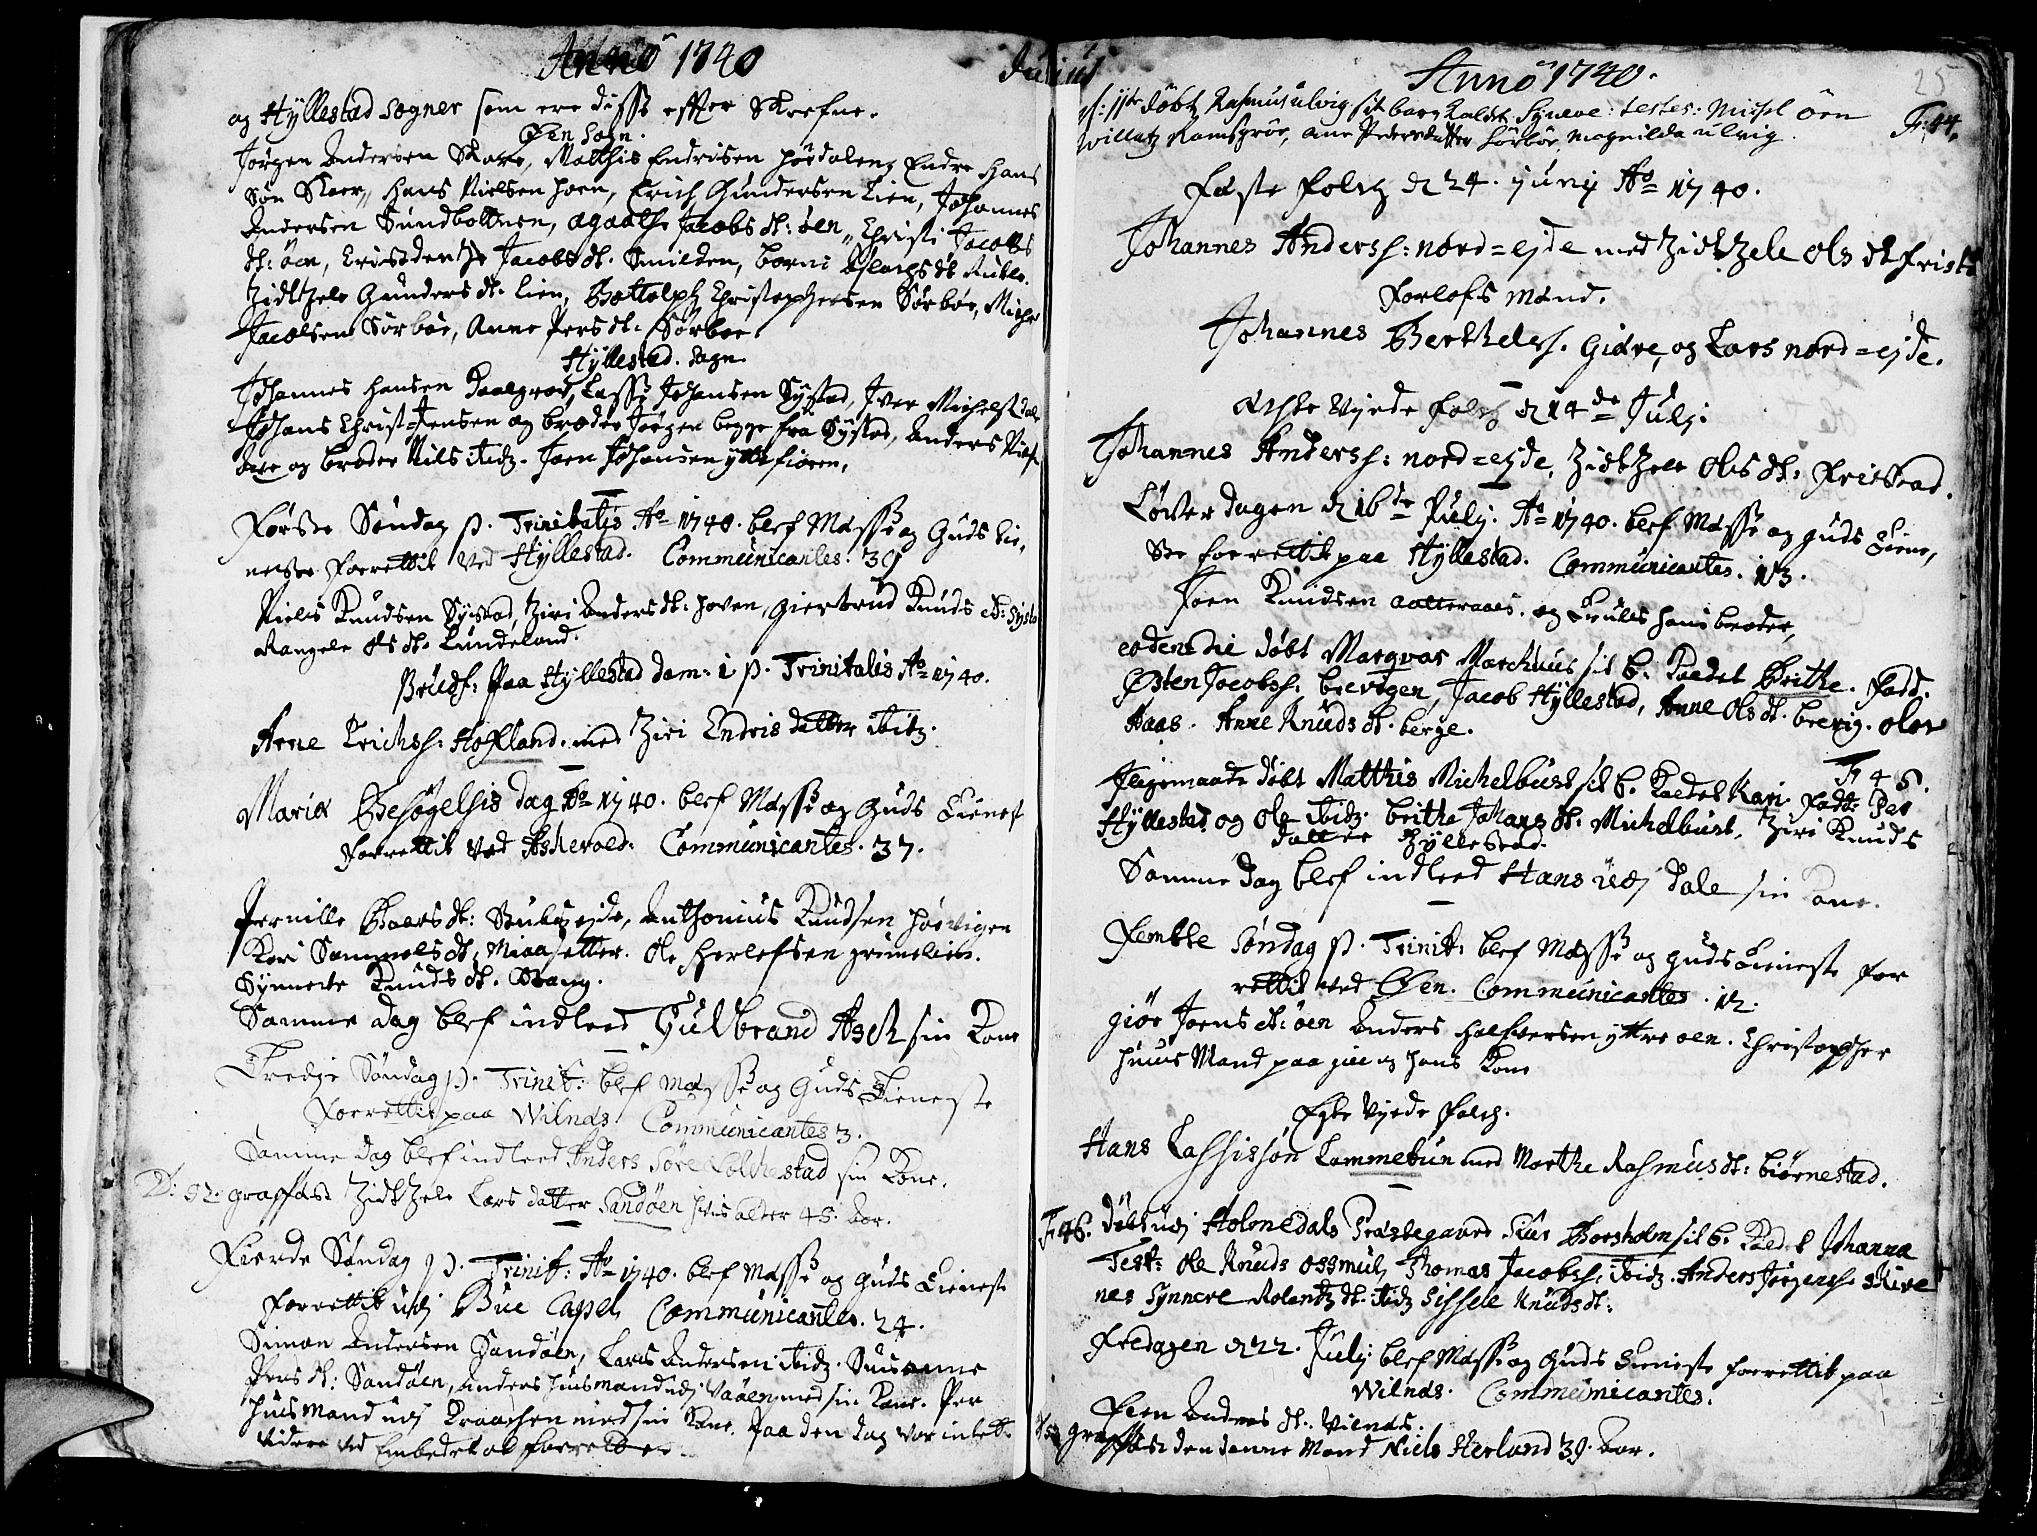 Anno 1740
Julius
og Hyllestad Sogner som ere disse efter Skrefne.
Øen Sogn.
Jørgen Andersen Skare, Matthis Endrisen Hördaleng Endre Hans
Søn Skaer, Hans Nielsen Hoen, Erich Gundersen Lien, Johannes
Andersen Sundbottnen, Agaathe Jacobs dt: öen, Christi Jacobs
dt: öen, Jacobs dt. Smilden, Borni dt
Zidtzele Gunders dt. Lien, Bottolph Christophersen Sørbøe, Michel
Jacobsen Sørbøe, Anne Pers dt: Sørbøe.
Hyllestad. Sogn.
Johannes Hansen Daalgrod, Lasse Johansen Systad, Iver Michels Dale
Johans Christ Jensen og broder Jørgen begge fra Systad, Anders Niels
Dale og broder Nils ibid. Joen Johansen ytte fioren,
Første Søndag p. Trinitatis Ao 1740. blef Messe og Guds Tie,
neste Forrettit Ved Hyllestad. Communicantes. 39
Niels Knudsen Systad, Ziri Anders dt: Hoven, Giertrud Knuds dt: Systa
Rangele Ols dt. Lundeland.
Brudf: Paa Hyllestad Dom: 1 p. Trinitatis Ao 1740.
Arne Erichss: Hofland. med Ziri Endris datter ibid.
Mariæ Besøgelsis dag Ao 1740. blef Messe og Guds Tienest
Forrettit Ved Askevold. Communicantes. 37.
Pernille Baars dt: Stubseide, Anthonius Knudsen Hörvigen
Kari Sammels dt, Miaasetter. Ole Herlefsen grimelien.
Synneve Knuds dt. Stang.
Samme dag blef indleed Gulbrand Asch sin Kone
Tredie Søndag p. Trinit: blef Messe og Guds Tieneste
Forrettit paa Wilnæs. Communicantes 3.
Samme dag blef indleed Anders Søre Kolchestad sin Kone.
D: 92. graffæst Zidtzele Lars datter Sandöen hvis alder 45. Aar.
Fierde Søndag p. Trinit: Ao 1740. blef Messe og Guds Tieneste
Forrettit udj Bue Capel, Communicantes. 24.
Simon Andersen Sandöen, Lars Andersen ibid. Susanne
Pers dt: Sandöen, Anders Husmand udj Vaaen med sin Kone. Per
Husmand udj Kraachen med sin Kone. Paa den dag var intet
Videre ved Embedet at forrette.
Anno 1740.
25
döbt Rasmus Ulvig sit barn Kaldet Syneve: testes: Michel öen
Ramsgröe, Ane Peders datter Sörböe, Magnilda Ulvig.
F: 44.
Fæste Folch d 24. Junij Ao 1740.
Johannes Anderss: Nord=ejde med Zidtzele Ols dt Friste
Forlofs Mænd.
Johannes Berthelss. Giøre, og Lars Nord=ejde.
Echte Vyede Folch d 14de Julj:
Johannes Anderss: Nord=ejde, Zidtzele Ols dt: Fristad.
Löverdagen d 16de Julj. Ao 1740. blef Messe og guds Tiene,
ste forrettit paa Hyllestad. Communicantes. 13.
Joen Knudsen Aatteraas. og Truls Hans broder,
eodem die döbt Marqvar Marchuus sit b. Kaldet Brithe. Fadd.
Østen Jacobss: brevigen, Jacob Hyllestad, Anne Ols dt. brevig. Oløv
Aaas. Anne Knuds dt. berge.
F. 45.
Ligemaade döbt Matthis Michelbust sit b. Kaldet Kari. Fadd: Per
Hyllestad og Ole ibid. Brithe Johans dt. Michelbust, Ziri Knuds
datter Hyllestad.
Samme dag blef indleed Hans udj Dale sin Kone.
Fembte Søndag p. Trinit: blef Messe og guds Tieneste for
rettit ved Øen. Communicantes. 12.
Giör Joens dt: öen Anders Halfversen yttre öen. Christopher
Huus Mand paa og hans Kone
Egte Vyede Folch.
Hans Lassissön Lammetun med Marthe Rasmus dt: biörnestad.
F: 46. döbt udj Holmedals Præstegaard Siur Borsholm sit b. Kaldet Johanna
Test: Ole Knuds Ossmul, Thomas Jacobss, ibid. Anders Jörgenss. Skive
nes Synneve Rolentz dt. ibid Sissele Knuds dt:
Fredagen d 22. Julij blef Messe og Guds Tieneste forrettit paa
Wilnæs. Communicantes.
Anders dt. Vilnæs.
graffæst den danne Mand Niels Herland 39. Aar.